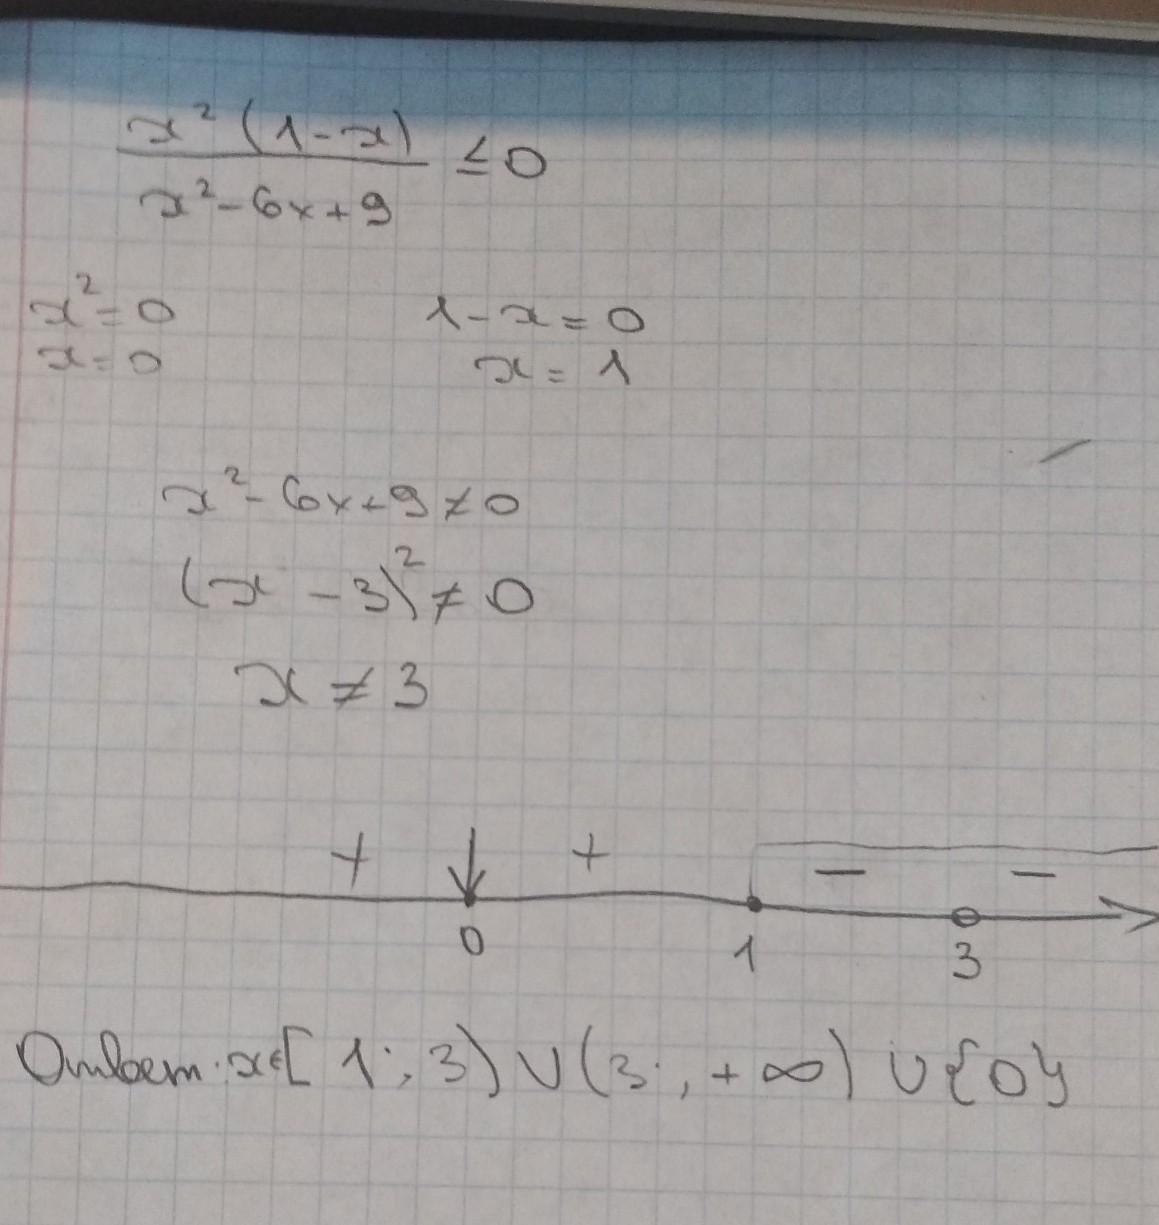 x² (1-x)
x² - 6x + 9
≤ 0
x² = 0
1 - x = 0
x = 0
x = 1
x² - 6x + 9 ≠ 0
(x - 3)² ≠ 0
x ≠ 3
+ + - -
0 1 3
Ответ: x∈[1; 3) ∪ (3; +∞) ∪ {0}